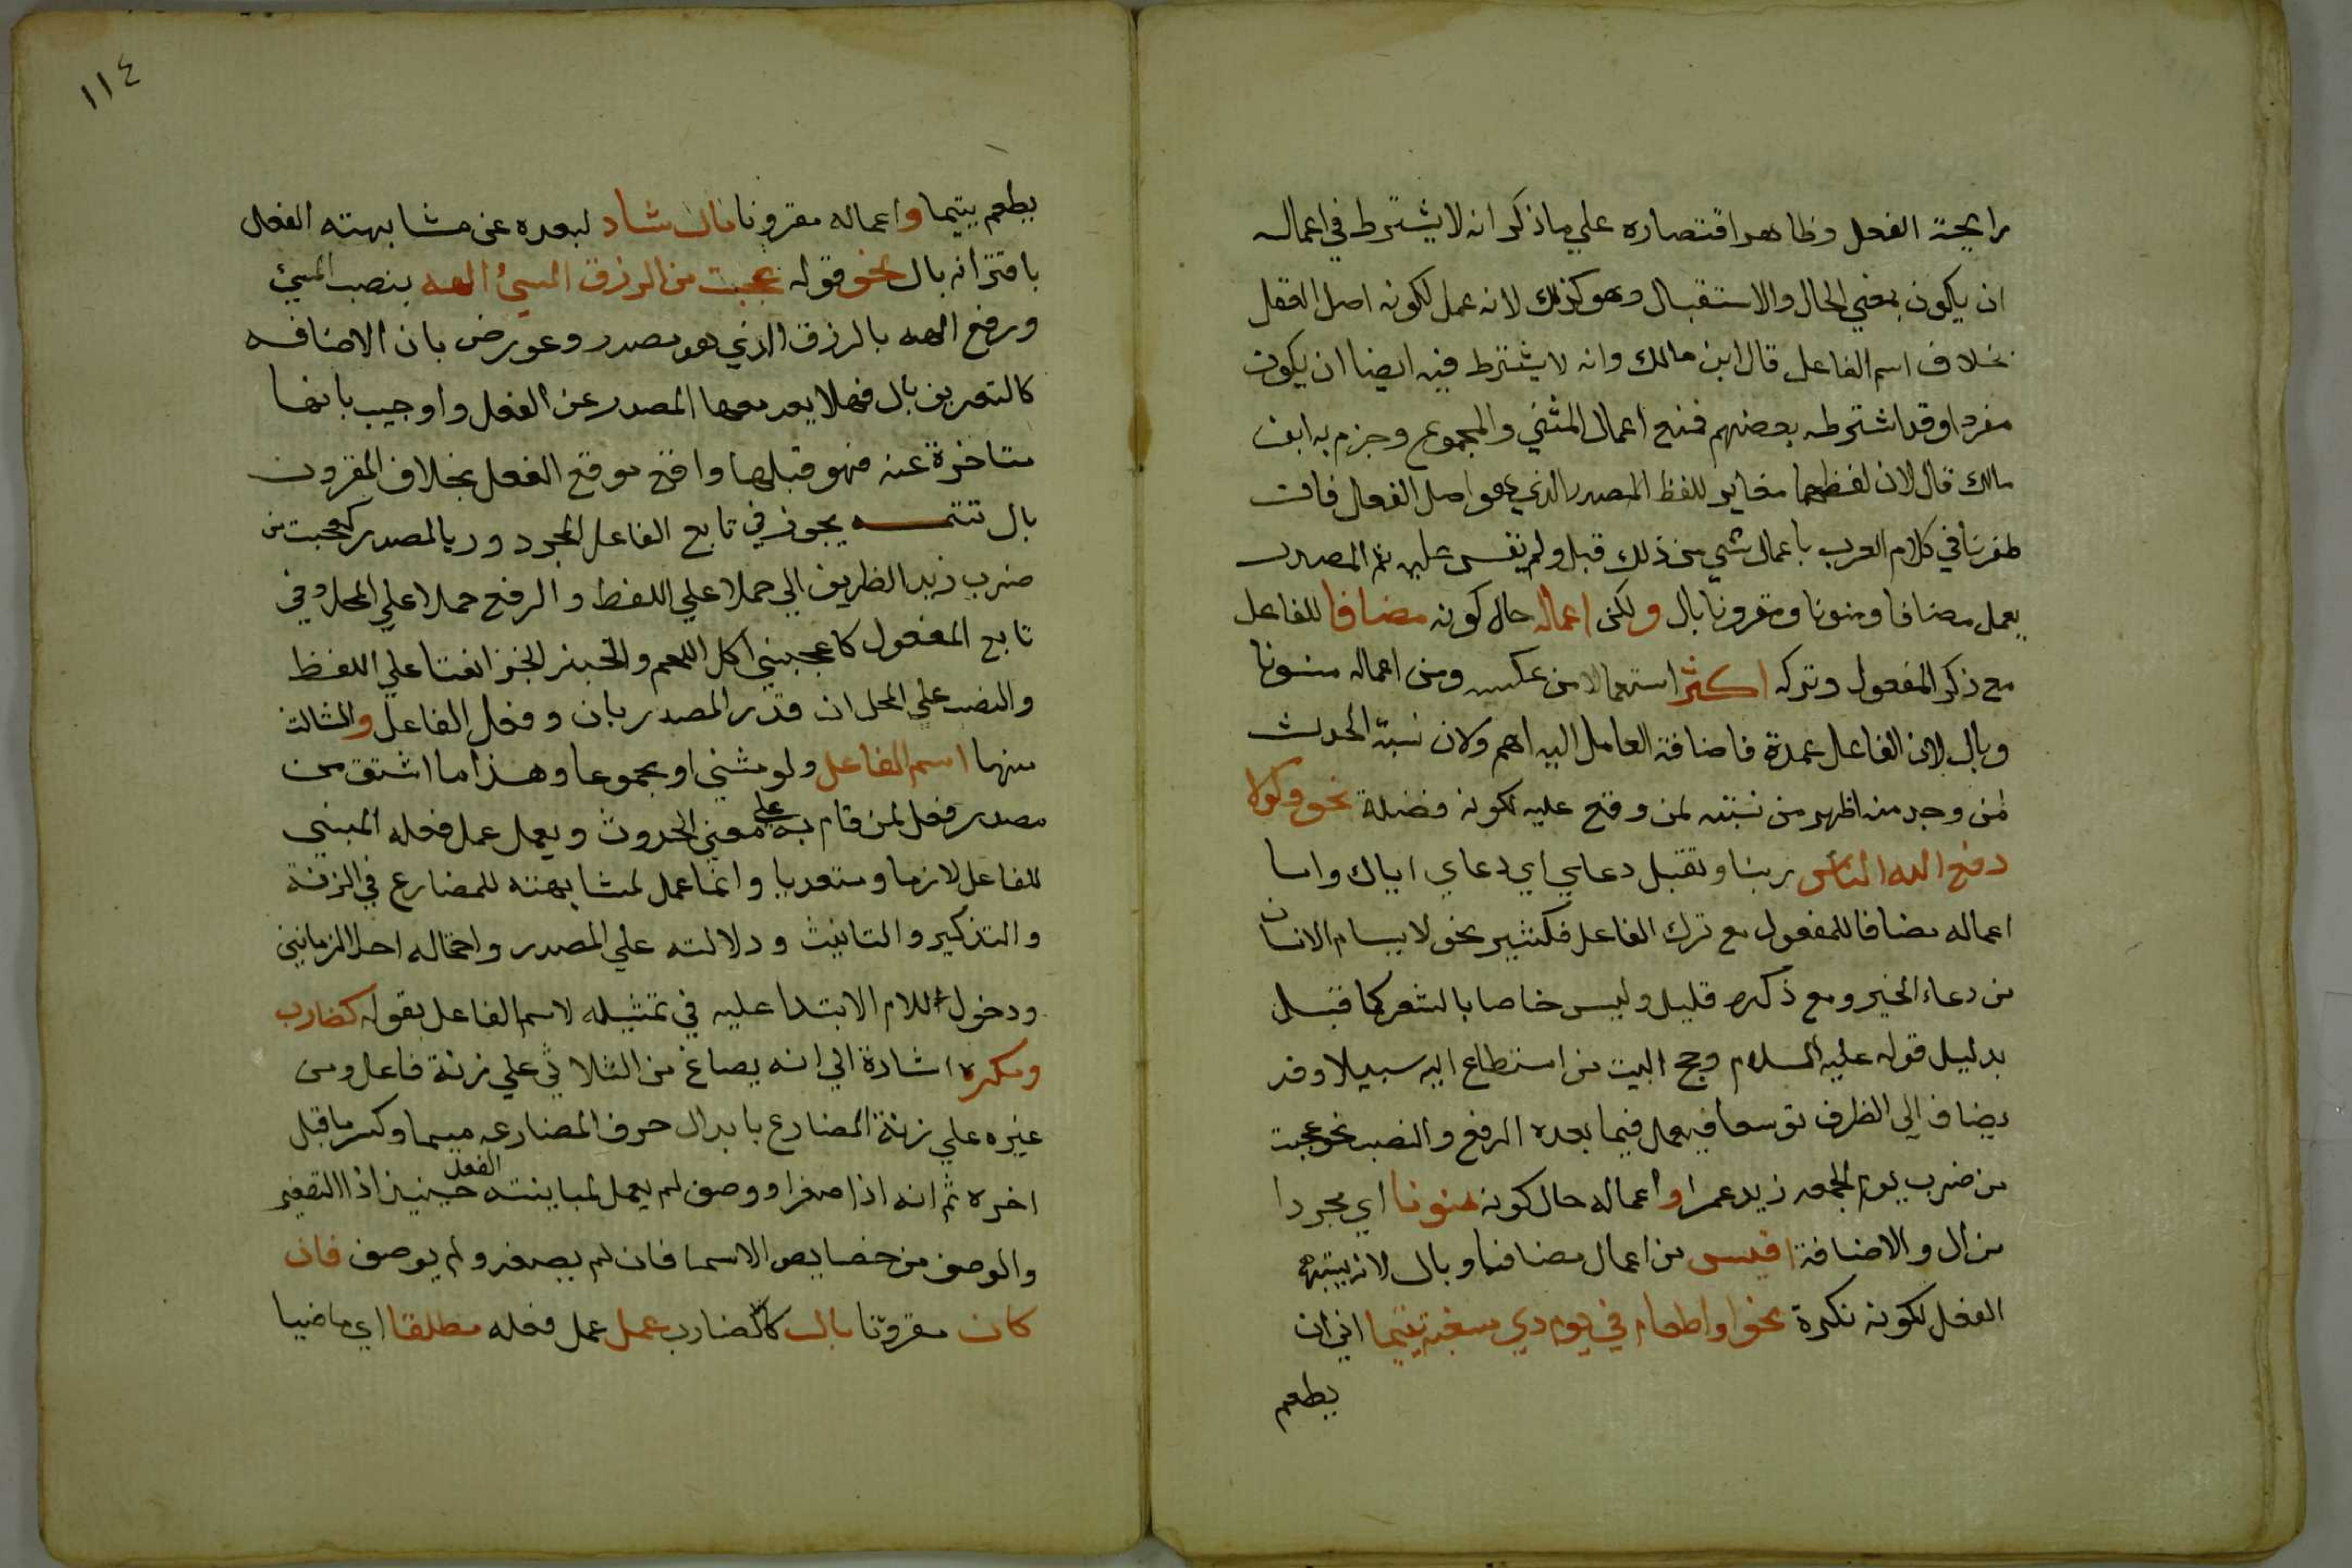 رايحة الفعل وظاهر اقتصاره علي ما ذكر انه لا يشترط في اعماله
ان يكون بمعني الحال والاستقبال وهو كذلك لانه عمل لكونه اصل الفعل
بخلاف اسم الفاعل قال ابن مالك وانه لا يشترط فيه ايضا ان يكون
مفردا وقد اشترطه بعضهم فمنع اعمال المثني والمجموع وجزم به ابن
مالك قال لان لفظهما مغاير للفظ المصدر الذي هو اصل الفعل فان
ظفرنا في كلام العرب باعمال شي من ذلك قبل ولم نقس عليه ثم المصدر
يعمل مضافا ومنونا ومقرونا بال ولكن اعماله حال كونه مضافا للفاعل
مع ذكر المفعول وتركه اكثر استعمالا من عكسه ومن اعماله منونا
وبال لان الفاعل عمدة فاضافة العامل اليه اهم ولان نسبة الحدث
لمن وجد منه اظهر من نسبته لمن وقع عليه لكونه فضلة نحو ولولا
دفع الله الناس ربنا وتقبل دعاي اي دعاي اياك واما
اعماله مضافا للمفعول مع ترك الفاعل فكثير نحو لا يسام الانسان
من دعاء الخير ومع ذكره قليل وليس خاصا بالشعر كما قيل
بدليل قوله عليه السلام وحج البيت من استطاع اليه سبيلا وقد
يضاف الي الظرف توسعا فيعمل فيما بعده الرفع والنصب نحو عجبت
من ضرب يوم الجمعه زيد عمرا واعماله حال كونه منونا اي مجردا
من ال والاضافة اقيس من اعمال مضافا وبال لانه يشبه
الفعل لكونه نكرة نحو او اطعام في يوم ذي مسغبة يتيما اي ان
يطعم
١١٤
يطعم يتيما واعماله مقرونا بال شاد لبعده عن مشابهته الفعل
باقترانه بال نحو قوله عجبت من الرزق المسيُ الهه بنصب المسيئ
ورفع الهه بالرزق الذي هو مصدر وعورض بان الاضافه
كالتعريف بال فهلا بعد معها المصدر عن الفعل واوجيب بانها
متاخرة عنه فهو قبلها واقع موقع الفعل بخلاف المقرون
بال تتمه يجوز في تابع الفاعل المجرور بالمصدر كعجبت من
ضرب زيد الظريف الجر حملا علي اللفظ والرفع حملا علي المحل وفي
تابع المفعول كاعجبني اكل اللحم والخبز الجر ايضا علي اللفظ
والنصب علي المحل ان قدر المصدر بان وفعل الفاعل والثالث
منها اسم الفاعل ولو مثني او مجموعا وهذا ما اشتق من
مصدر فعل لمن قام به علي معني الحدوث ويعمل عمل فعله المبني
للفاعل لازما ومتعديا وانما عمل لمشابهته للمضارع في الزنة
والتذكير والتانيث ودلالته علي المصدر واحتماله احد الزمانين
ودخول اللام الابتدا عليه في تمثيله لاسم الفاعل بقوله كضارب
ومكره اشارة الي انه يصاغ من الثلاثي علي زنة فاعل ومن
غيره علي زنة المضارع بابدال حرف المضارعه ميما وكسر ما قبل
اخره ثم انه اذا صغر او وصف لم يعمل لمباينته الفعل حينيذ اذ التصغير
والوصف من خصايص الاسما فان لم يصغر ولم يوصف فان
كان مقرونا بال كالضارب عمل عمل فعله مطلقا اي ماضيا